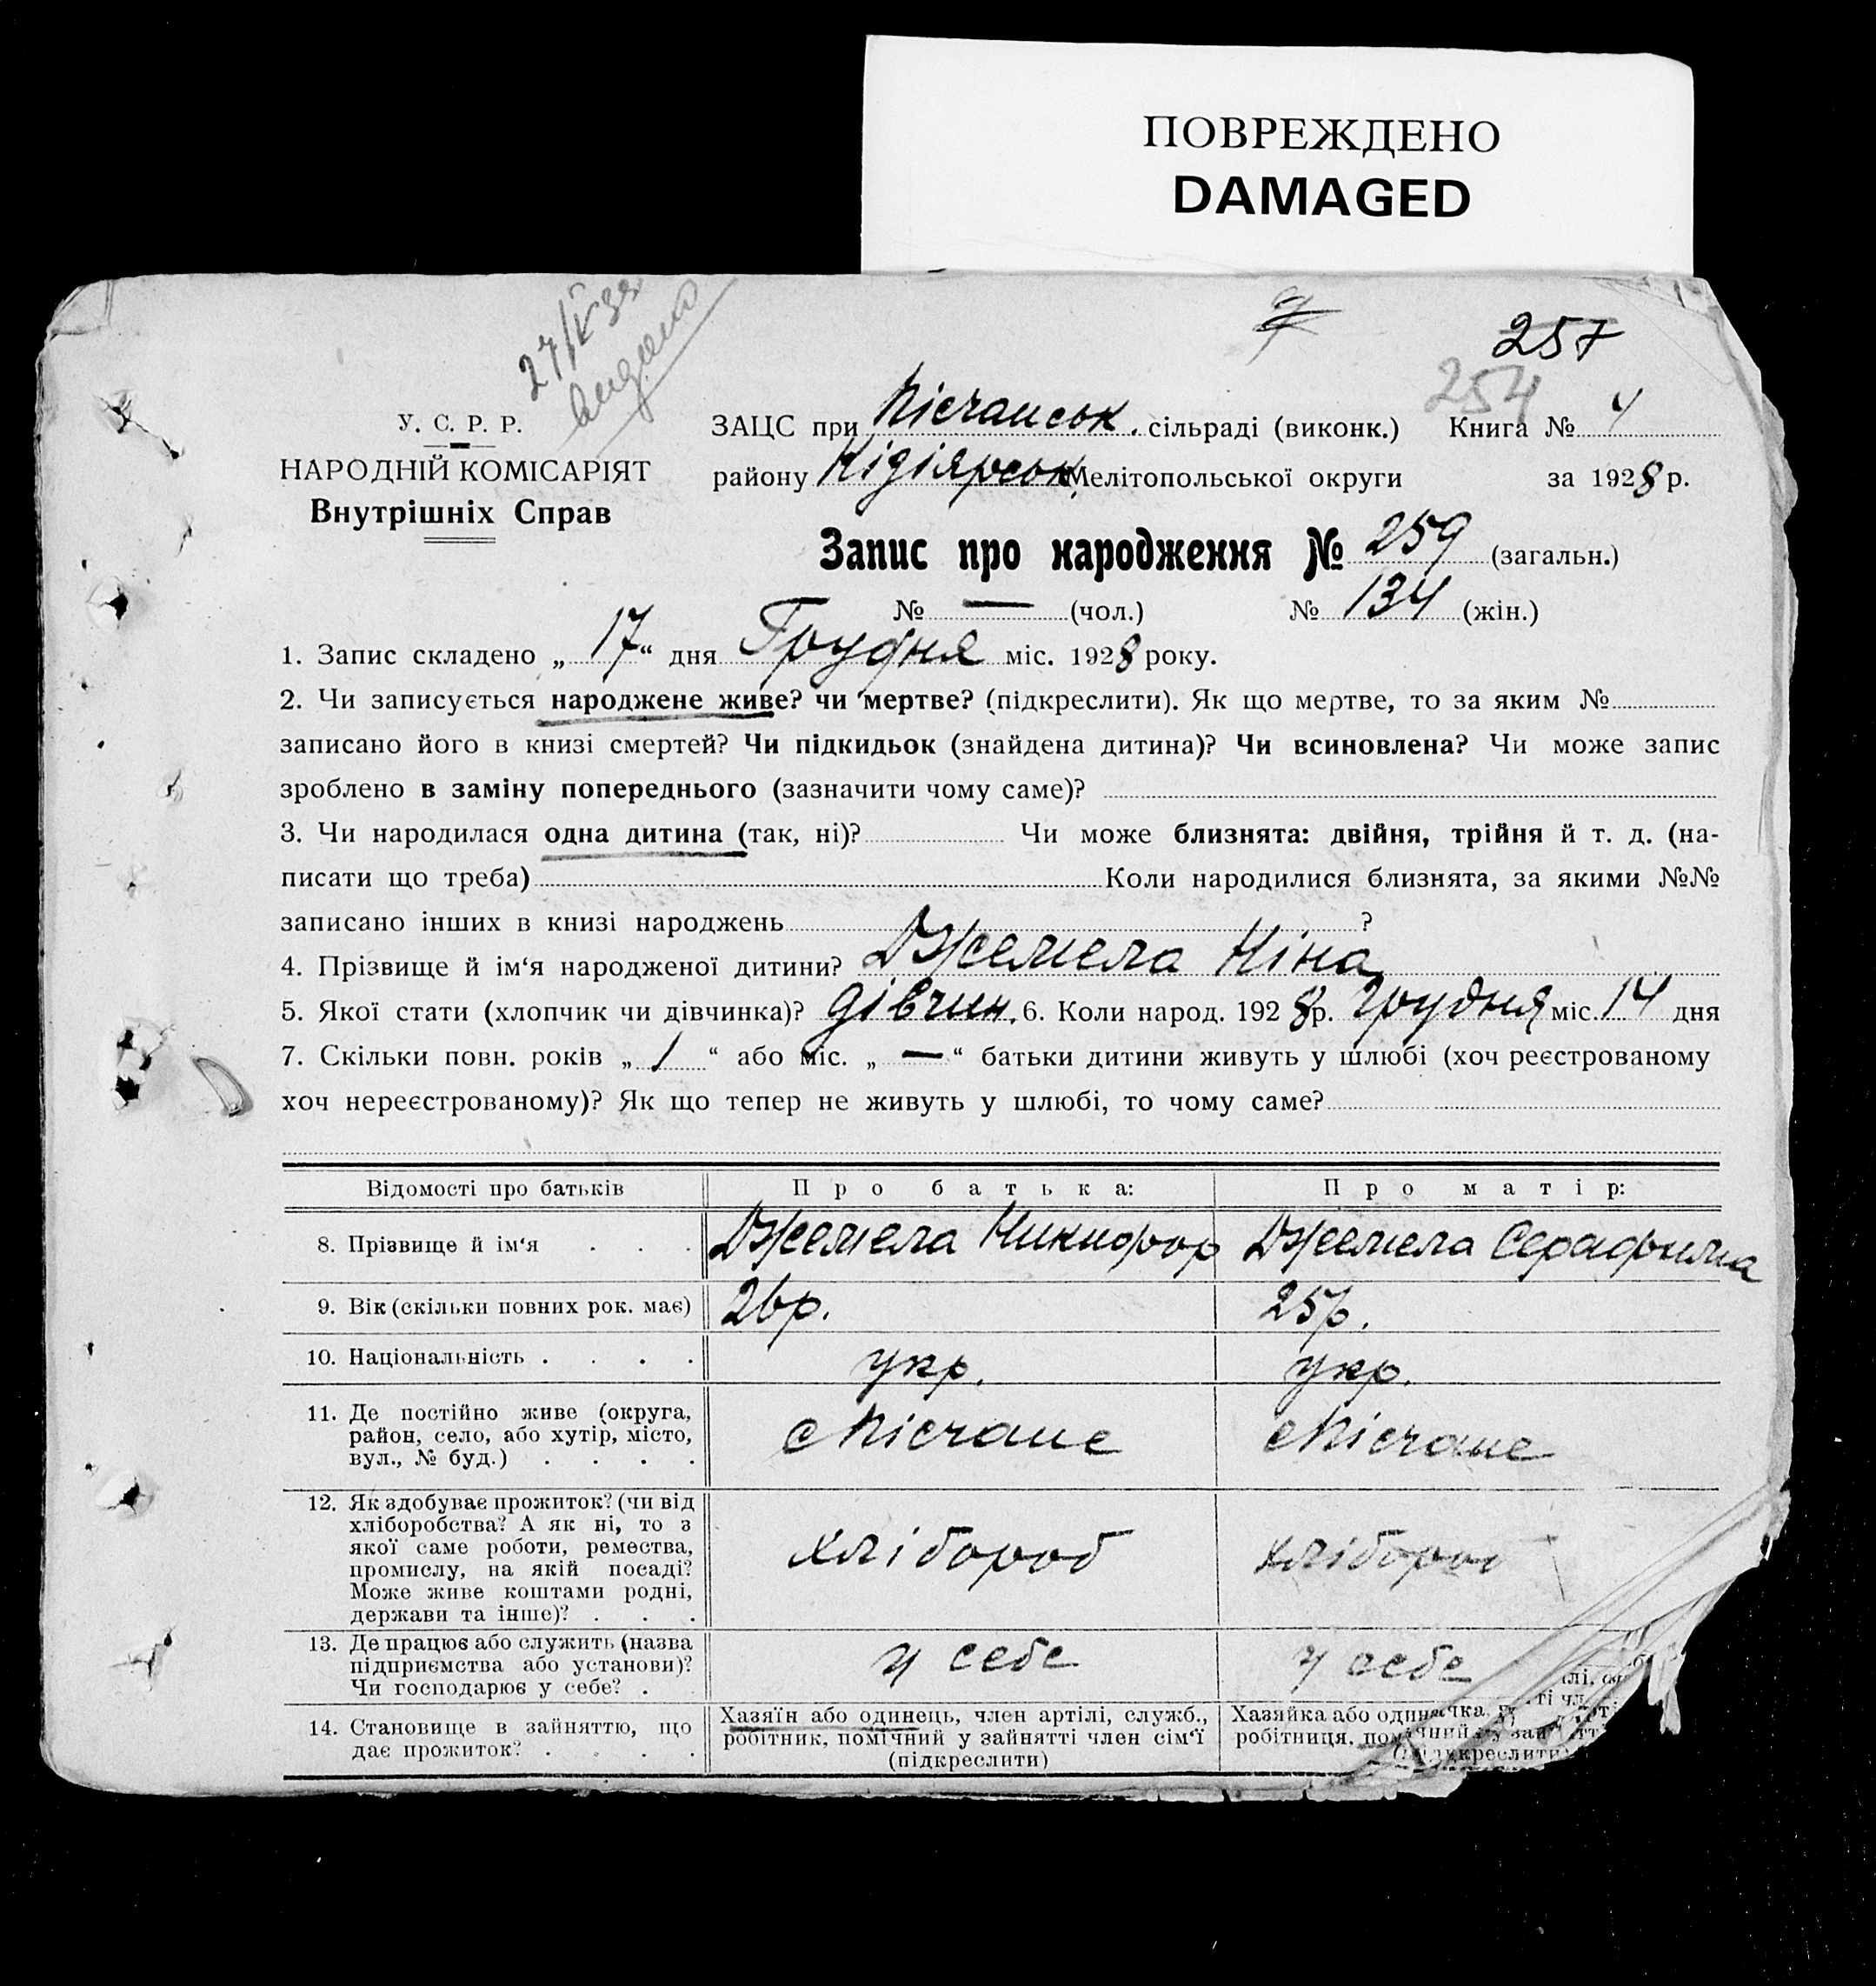 ПОВРЕЖДЕНО
DAMAGED
257
254
У. С. Р. Р.
НАРОДНІЙ КОМІСАРІЯТ
Внутрішніх Справ
ЗАЦС при Пісчанськ. сільраді (виконк.) Книга № 4
району Кізіярськ. Мелітопольської округи за 1928 р.
Запис про народження № 259 (загальн.)
№ — (чол.) № 134 (жін.)
1. Запис складено „ 17 “ дня Грудня міс. 1928 року.
2. Чи записується народжене живе? чи мертве? (підкреслити). Як що мертве, то за яким №
записано його в книзі смертей? Чи підкидьок (знайдена дитина)? Чи всиновлена? Чи може запис
зроблено в заміну попереднього (зазначити чому саме)?
3. Чи народилася одна дитина (так, ні)? Чи може близнята: двійня, трійня й т. д. (на-
писати що треба) Коли народилися близнята, за якими №№
записано інших в книзі народжень ?
4. Прізвище й ім‘я народженої дитини? Джемела Ніна
5. Якої стати (хлопчик чи дівчинка)? дівчин. 6. Коли народ. 1928 р. Грудня міс. 14 дня
7. Скільки повн. років „ 1 “ або міс. „ — “ батьки дитини живуть у шлюбі (хоч реєстрованому
хоч нереєстрованому)? Як що тепер не живуть у шлюбі, то чому саме?
Відомості про батьків Про батька: Про матір:
8. Прізвище й ім‘я . . . Джемела Никифор Джемела Серафима
9. Вік (скільки повних рок. має) 26 р. 25 р.
10. Національність . . . . укр. укр.
11. Де постійно живе (округа,
район, село, або хутір, місто,
вул., № буд.) . . . .
с Пісчане с Пісчане
12. Як здобуває прожиток? (чи від
хліборобства? А як ні, то з
якої саме роботи, ремества,
промислу, на якій посаді?
Може живе коштами родні,
держави та інше)? . . .
хлібороб хлібороб
13. Де працює або служить (назва
підприємства або установи)?
Чи господарює у себе? .
у себе у себе
14. Становище в зайняттю, що
дає прожиток? . . . .
Хазяїн або одинець, член артілі, служб.,
робітник, помічний у зайнятті член сім‘ї
(підкреслити)
Хазяйка або одиначка,
робітниця,